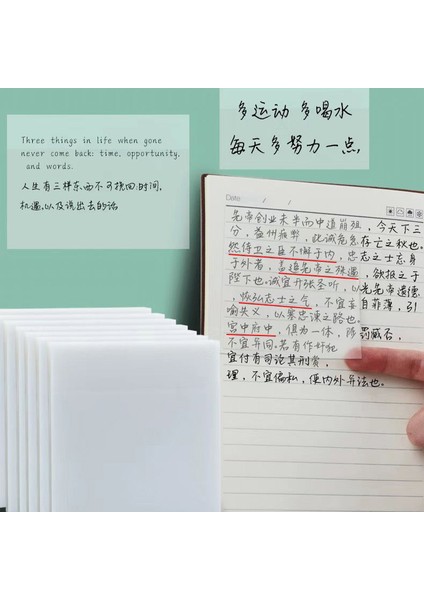 多运动 多喝水
每天多努力一点.
Three things in life when gone
never come back: time, opportunity,
and words.
人生有三样东西不可挽回:时间,
机遇,以及说出去的话
Date: / /
先帝创业未半而中道崩殂，今天下三
分，益州疲弊，此诚危急存亡之秋也。
然侍卫之臣不懈于内，忠志之士忘身
于外者，盖追先帝之殊遇，欲报之于
陛下也。诚宜开张圣听，以光先帝遗德，
恢弘志士之气，不宜妄自菲薄，引
喻失义，以塞忠谏之路也。
宫中府中，俱为一体，陟罚臧否，
不宜异同。若有作奸犯
宜付有司论其刑赏，
理，不宜偏私，使内外异法也。